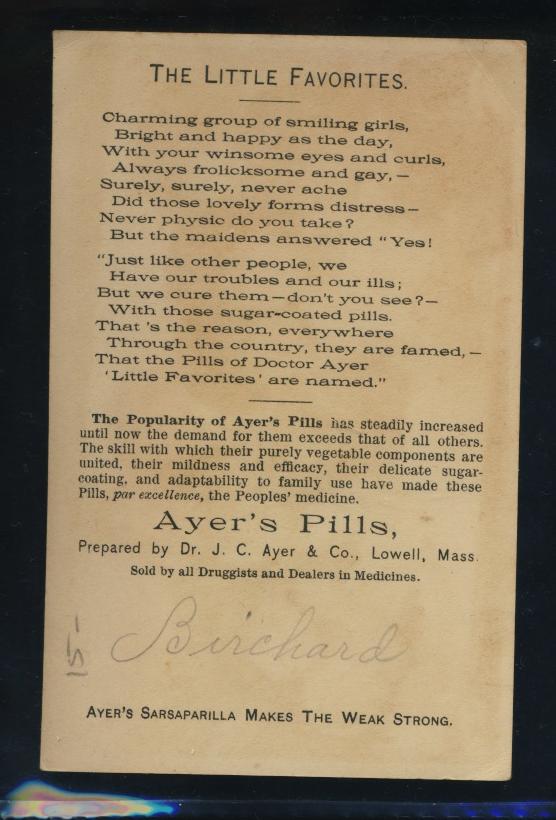 THE LITTLE FAVORITES.
Charming group of smiling girls,
Bright and happy as the day,
With your winsome eyes and curls,
Always frolicksome and gay,—
Surely, surely, never ache
Did those lovely forms distress—
Never physic do you take?
But the maidens answered "Yes!
"Just like other people, we
Have our troubles and our ills;
But we cure them—don't you see?—
With those sugar-coated pills.
That 's the reason, everywhere
Through the country, they are famed,—
That the Pills of Doctor Ayer
'Little Favorites' are named."
The Popularity of Ayer's Pills has steadily increased
until now the demand for them exceeds that of all others.
The skill with which their purely vegetable components are
united, their mildness and efficacy, their delicate sugar-
coating, and adaptability to family use have made these
Pills, par excellence, the Peoples' medicine.
Ayer's Pills,
Prepared by Dr. J. C. Ayer & Co., Lowell, Mass.
Sold by all Druggists and Dealers in Medicines.
Birchard
AYER'S SARSAPARILLA MAKES THE WEAK STRONG.